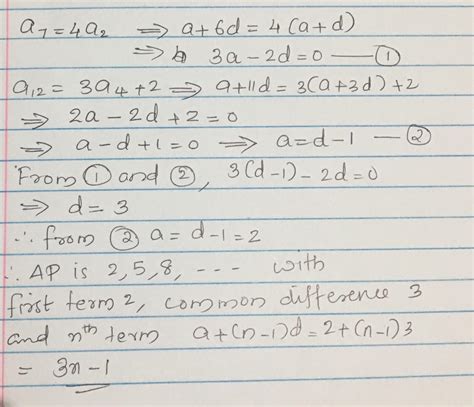 a₇ = 4a₂ ⇒ a+6d = 4(a+d)
⇒ 3a - 2d = 0 — ①
a₁₂ = 3a₄+2 ⇒ a+11d = 3(a+3d)+2
⇒ 2a - 2d + 2 = 0
⇒ a - d + 1 = 0 ⇒ a = d - 1 — ②
From ① and ②, 3(d-1) - 2d = 0
⇒ d = 3
∴ from ② a = d - 1 = 2
∴ AP is 2, 5, 8, --- with
first term 2, common difference 3
and nth term a+(n-1)d = 2+(n-1)3
= 3n - 1